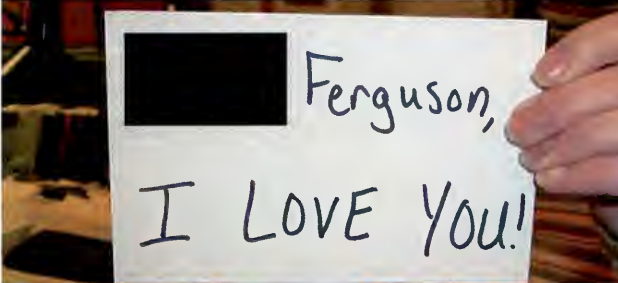 Ferguson,
I LOVE YOU!